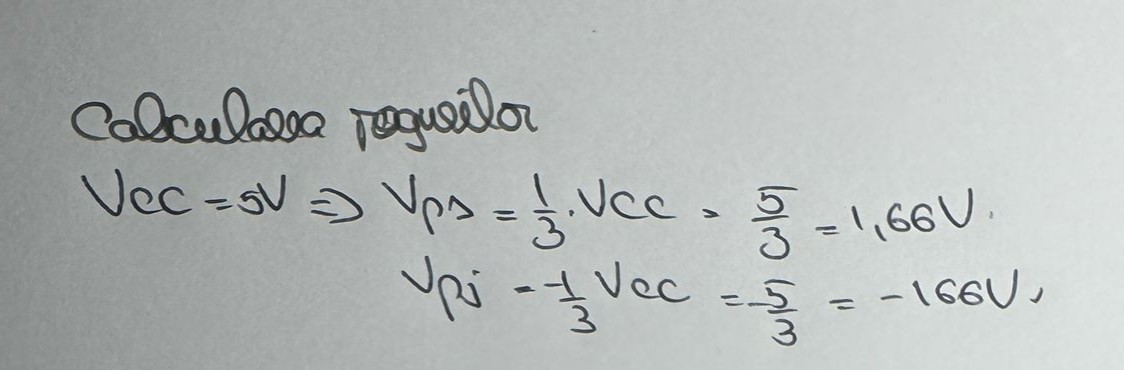 Calcularea pragurilor
Vcc = 5V => Vps = 1/3 · Vcc = 5/3 = 1,66V.
Vpi = -1/3 Vcc = -5/3 = -166V,